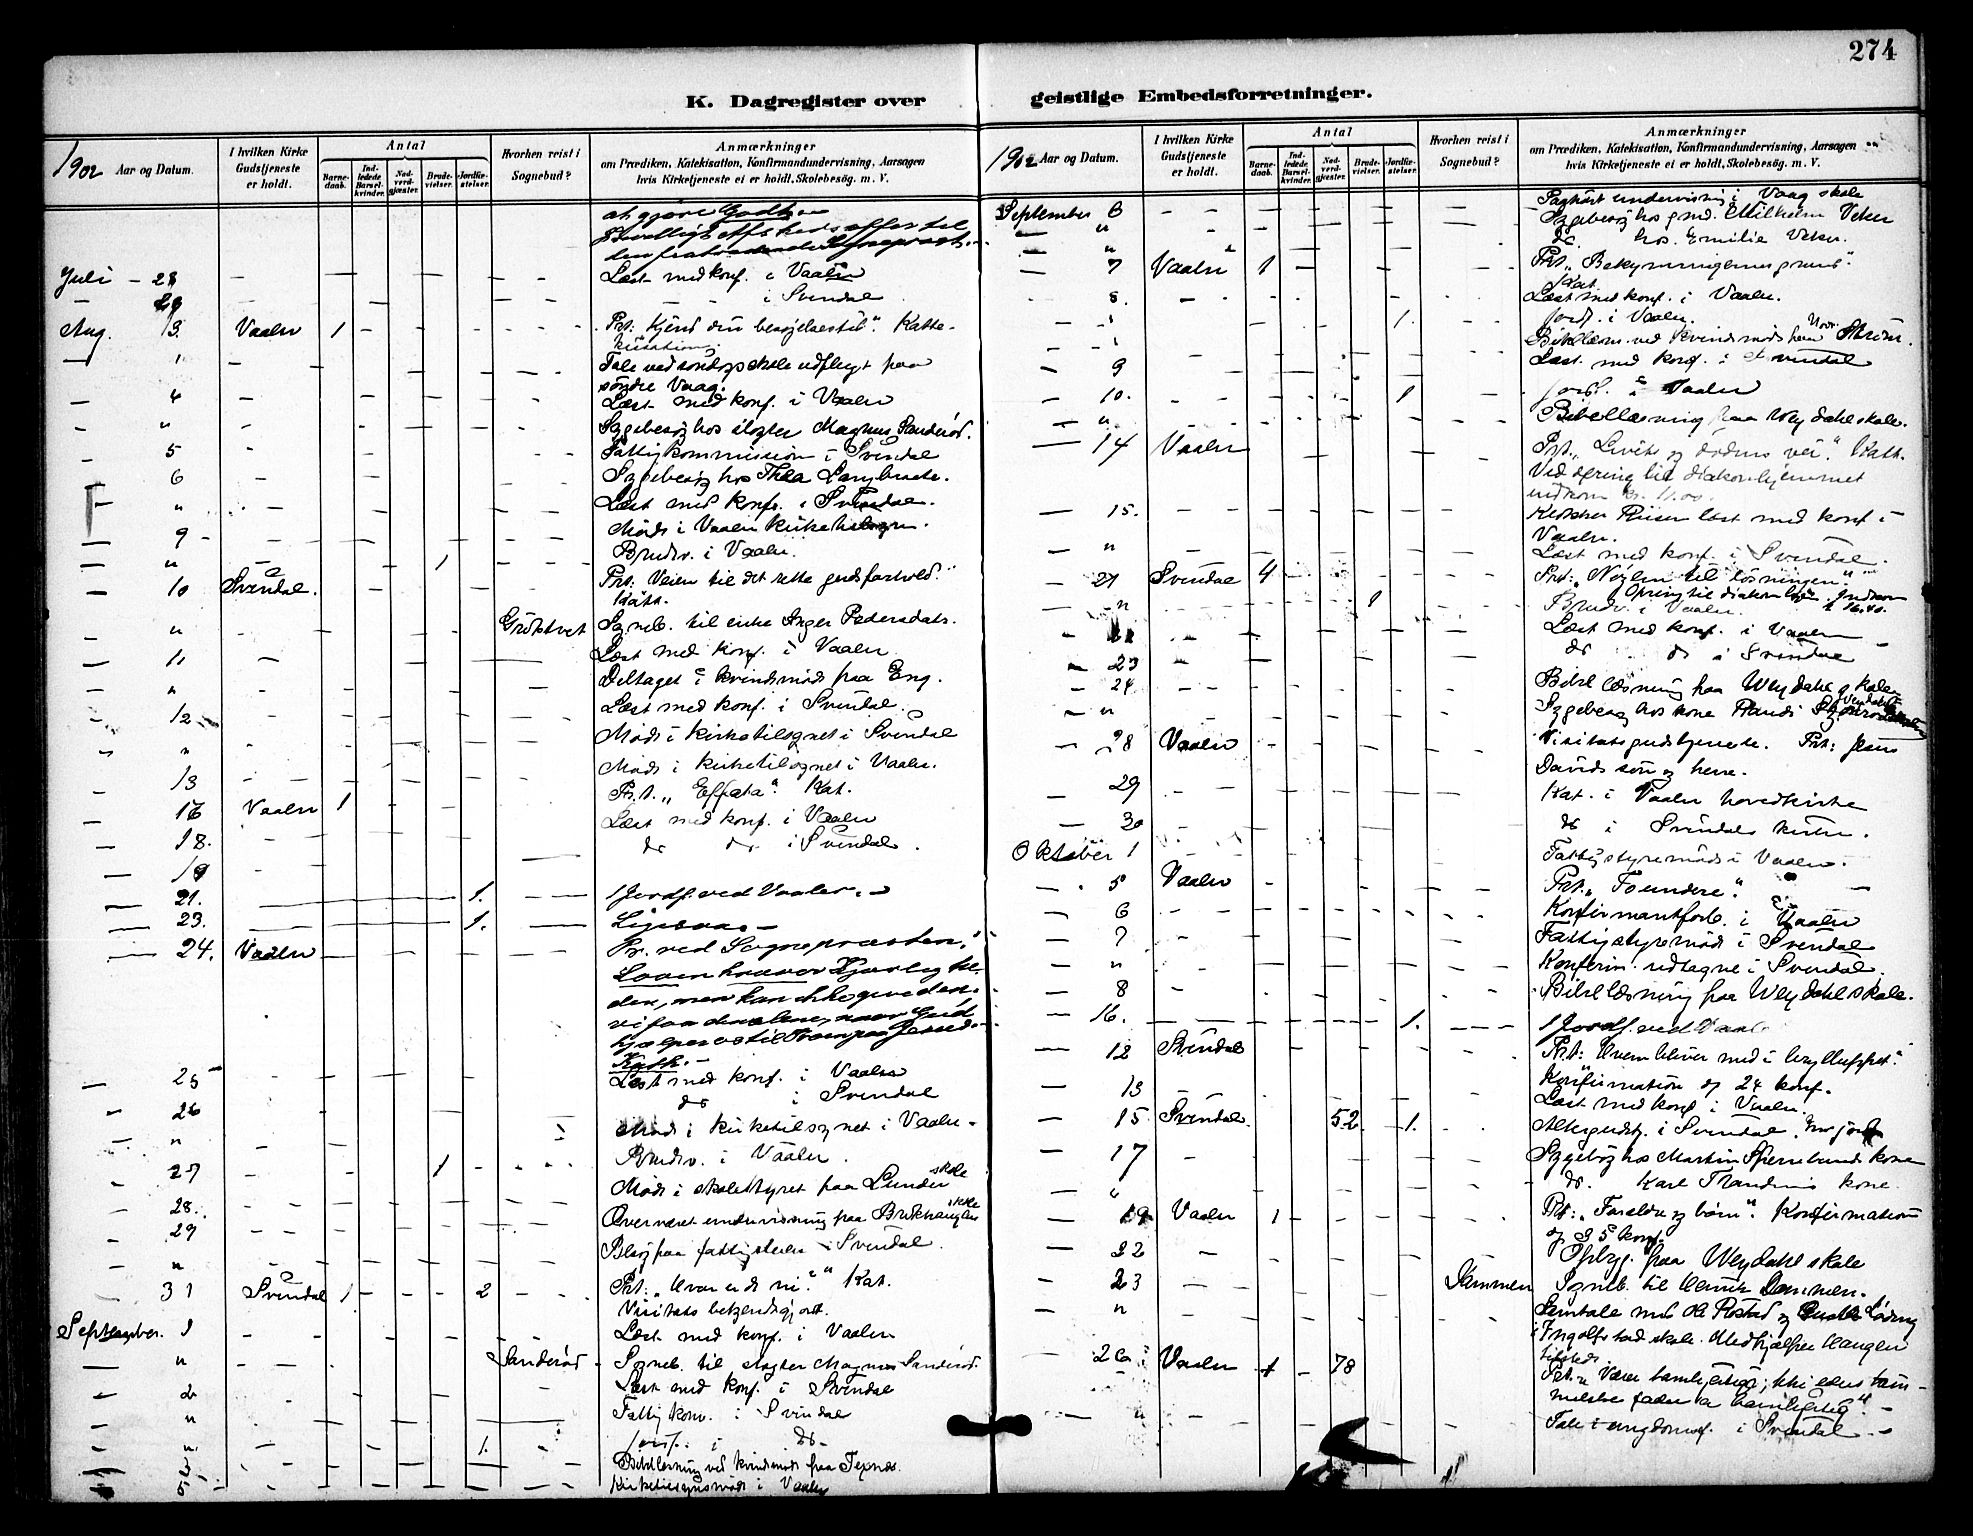 274
K. Dagregister over geistlige Embedsforretninger.
1902 Aar og Datum.
I hvilken Kirke Gudstjeneste er holdt.
Antal
Barnedaab.
Indledede Barselkvinder.
Nadverdgjæster.
Brudevielser.
Jordfæstelser.
Hvorhen reist i Sognebud?
Anmærkninger
om Prædiken, Katekisation, Konfirmandundervisning, Aarsagen
hvis Kirketjeneste ei er holdt, Skolebesög. m. V.
at gjøre Godt
Juli - 28 Læst med konf. i Vaaler
29 - - i Svendal
Aug. 3 Vaaler 1 Prt: Kjend din besøjelsestid". Kate-
kisation.
Tale ved søndagsskole udflugt paa
søndre Vaag.
4 Læst med konf. i Vaaler
" Sygebesøg hos slagter Magnus Sanderød.
5 Fattigkommission i Svendal
6 Sygebesøg hos Thea Langbraate.
" Læst med konf. i Svendal.
9 Møde i Vaaler kirketilsyn.
" 1 Brudv. i Vaaler.
10 Svendal. Prt: Veien til det rette gudsforhold."
Kat.
" Gröktvet Sogneb. til enke Inger Pedersdatr.
11 Læst med konf. i Vaaler
" Deltaget i kvindemøde paa Eng.
12 Læst med konf. i Svendal.
" Møde i kirketilsynet i Svendal
13 Møde i kirketilsynet i Vaaler.
16 Vaaler 1 Prt. "Effata". Kat.
18. Læst med konf. i Vaaler
19 do do i Svendal.
21. 1. 1 Jordf. ved Vaaler.
23. 1. Ligesaa
24. Vaaler Pr. ved Sognepræsten.
Loven kræver Kjærlighe-
den, men kan ikke give den.
Kath.
25 Læst med konf. i Vaaler
26 do i Svendal
" Møde i kirketilsynet i Vaaler.
27 1 Brudv. i Vaaler.
28. Møde i skolestyret paa Lunder skole
29 Overværet undervisning paa skole
" Besøg paa fattigsteder i Svendal.
31 Svendal 1 2 Prt: "Hvor er de ni?" Kat.
Visitats bekjendtgjort.
September. 1 Læst med konf. i Vaaler
" Sanderød Sogneb. til slagter Magnus Sanderød.
2 Læst med konf. i Svendal
" Fattigkom. i Svendal
" 1. Jordf. i do.
Bibellæsning ved kvindemøde paa Texnes.
5 Kirketilsynsmøde i Vaaler
1902 Aar og Datum.
I hvilken Kirke Gudstjeneste er holdt.
Antal
Barnedaab.
Indledede Barselkvinder.
Nadverdgjæster.
Brudevielser.
Jordfæstelser.
Hvorhen reist i Sognebud?
Anmærkninger
om Prædiken, Katekisation, Konfirmandundervisning, Aarsagen
hvis Kirketjeneste ei er holdt, Skolebesög. m. V.
September 6 Paahørt undervisning i Vaag skole
" Sygebesøg hos gmd. Vilhelm Veker
" do. hos Emilie Veker.
7 Vaaler 1 Prt. "Bekymringernes grund".
Kat.
8. Læst med konf. i Vaaler.
" 1. Jordf. i Vaaler.
" Bibellæsn. ved kvindemøde hos
9 Læst med konf. i Svendal
10. 1 Jordf. i Vaaler
" Bibellæsning paa Weydahl skole.
14 Vaaler Prt. "Livets og dødens vei". Kath.
Ved ofring til diakonhjemmet
indkom kr. 11.00.
15. Klokker Riiser læst med konf. i
Vaaler.
" Læst med konf. i Svendal.
21 Svendal 4 Prt: "Nøglen til løsningen".
Ofring til diakonhj. Indkom
" 1 Brudv. i Vaaler.
22 Læst med konf. i Vaaler
23 do do i Svendal
24 Bibellæsning paa Weydahl skolen
" Sygebesøg hos kone Randi
28 Vaaler Visitatsgudstjeneste. Prt: Jesus
Davids søn og herre.
29 Kat. i Vaaler hovedkirke
30 do i Svendals kirke.
Oktober 1 Fattigstyremøde i Vaaler.
5 Vaaler Prt.
6 Konfirmantforb. i Vaaler
7 Fattigstyremøde i Svendal
" Konferin. udtagne i Svendal.
8 Bibellæsning paa Weydahl skole.
16. 1. 1 Jordf. ved Vaaler
12 Svendal Prt: Hvem bliver med i bryllupet."
Konfirmation af 24 konf.
13 Læst med konf. i Vaaler.
15 Svendal 52 1. Altergudstj. i Svendal.
17 Sygebesøg hos Martin Sperrebunds kone
" do. Karl Trandems kone.
19 Vaaler 1 Prt: "Foreldre og børn". Konfirmation
af 35 konf.
22 Opbyg. paa Weydahl skole
23 Dammen Sogneb. til Dammen.
" Samtale med
i Ingolfsstad skole. Medhjælper Haugen
tilstede.
26 Vaaler 1 78 Prt. "Vær barmhjertige, ikke eders him-
melske fader er barmhjertig".
" Tale i ungdomsf. i Svendal